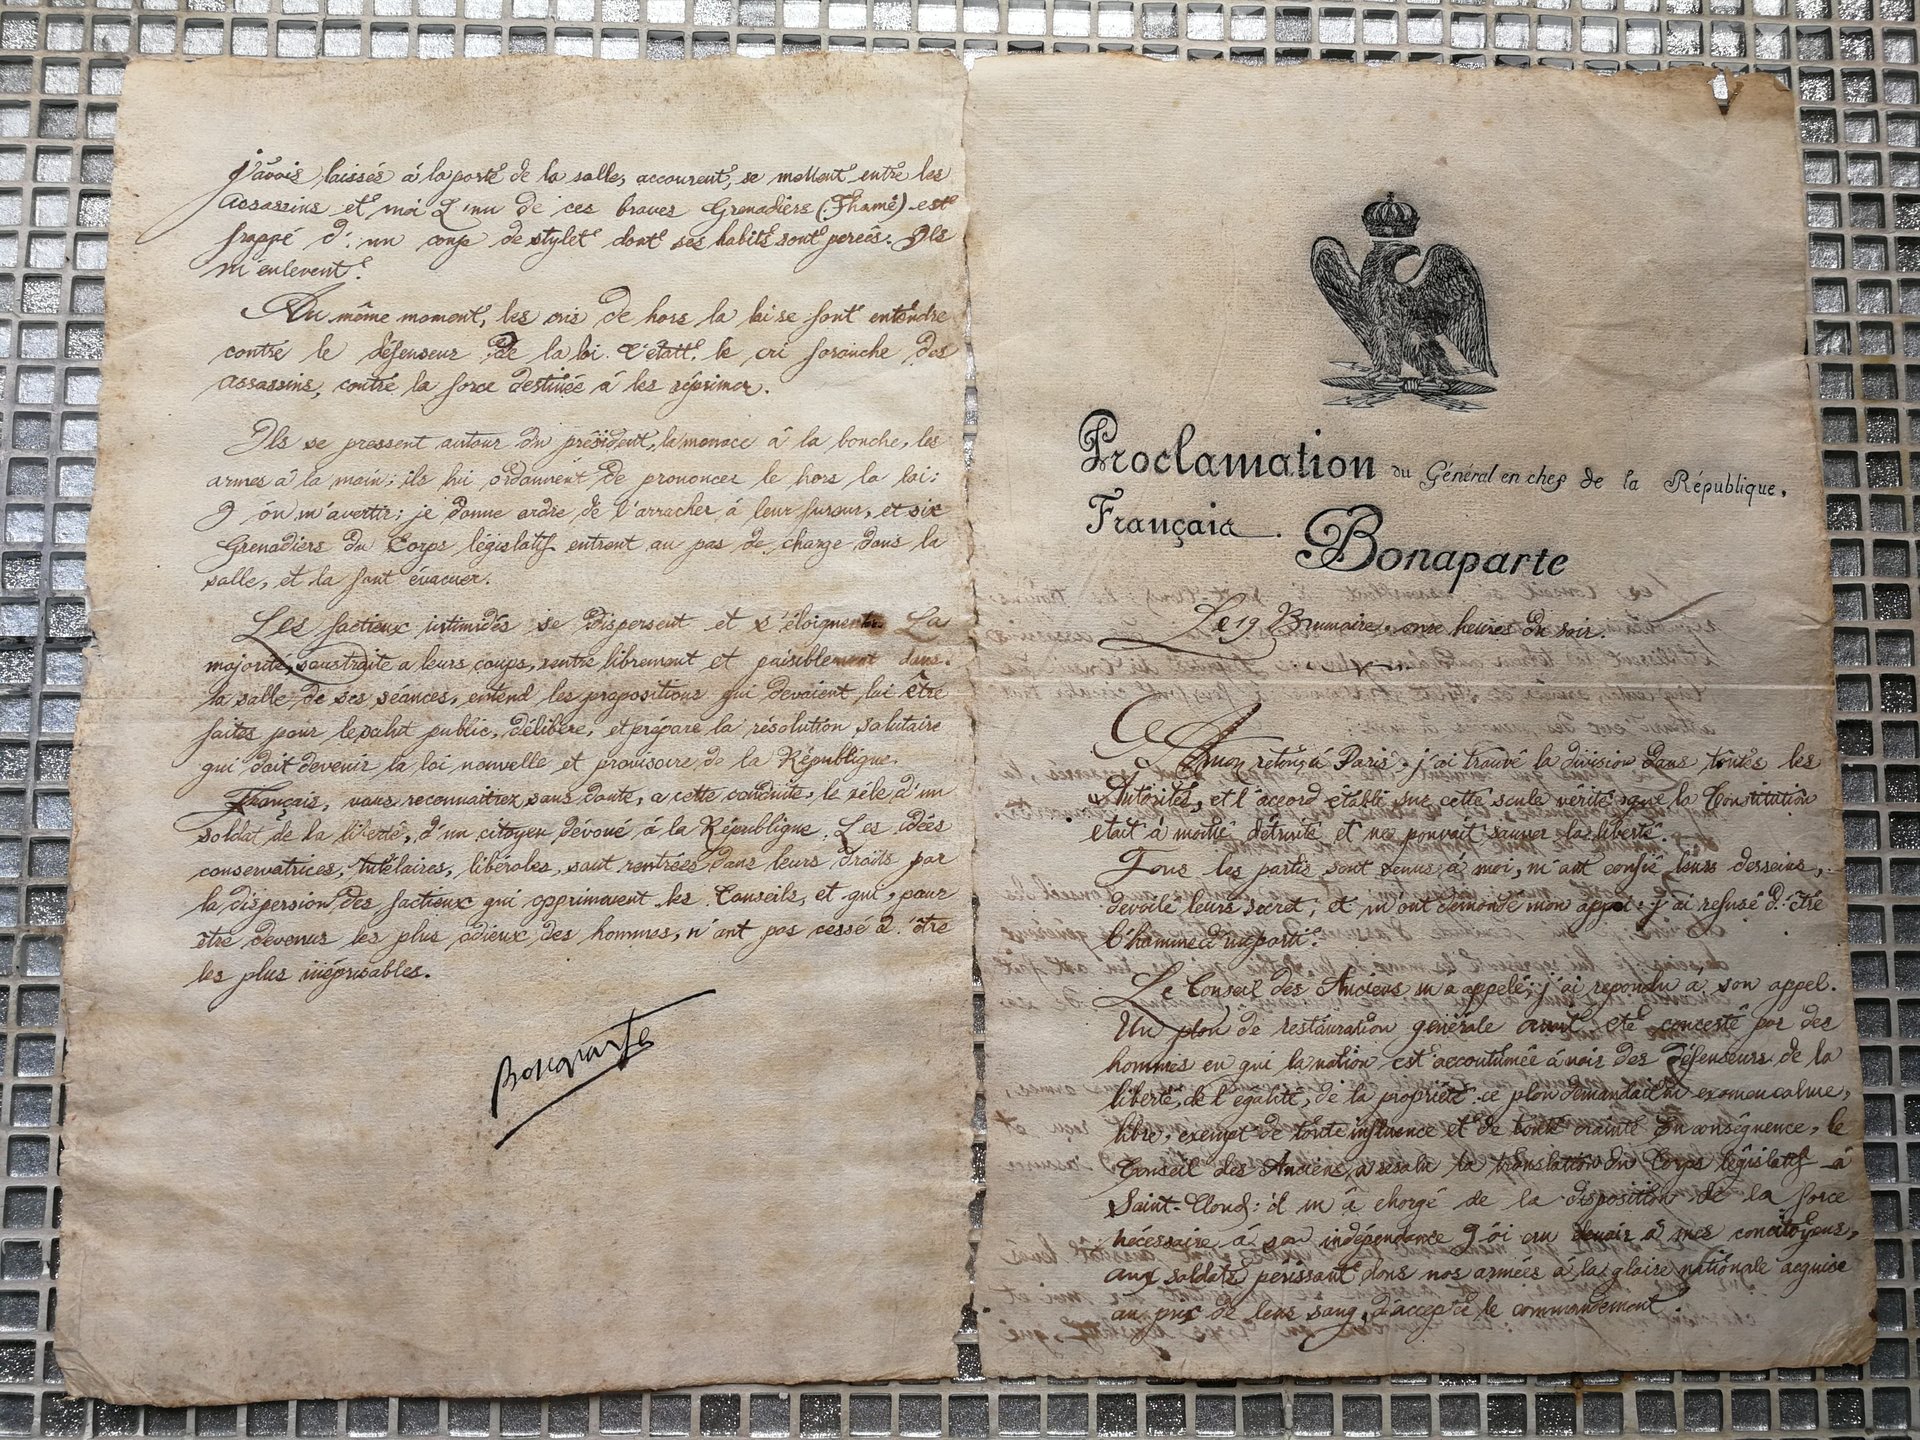 j'avois laissés à la porte de la salle, accourent, se mettent entre les
assassins et moi L'un de ces braves Grenadiers (Thamé) est
frappé d'un coup de stylet dont ses habits sont percés. Ils
m'enlevent.
Au même moment, les cris de hors la loi se font entendre
contre le défenseur de la loi. C'était le cri farouche des
assassins, contre la force destinée à les réprimer.
Ils se pressent autour du président, la menace à la bouche, les
armes à la main; ils lui ordonnent de prononcer le hors la loi:
J'on m'avertir; je donne ordre de l'arracher à leur fureur, et six
Grenadiers du Corps législatif entrent au pas de charge dans la
salle, et la font évacuer.
Les factieux intimidés se dispersent et s'éloignent. La
majorité, soustraite a leurs coups, rentre librement et paisiblement dans
la salle de ses séances, entend les propositions qui devaient lui être
faites pour le salut public, délibère, et prépare la résolution salutaire
qui doit devenir la loi nouvelle et provisoire de la République.
Français, vous reconnaitrez sans doute, a cette conduite, le zéle d'un
soldat de la liberté, d'un citoyen dévoué à la République. Les idées
conservatrices, tutélaires, libérales, sont rentrées dans leurs droits par
la dispersion des factieux qui opprimoient les Conseils, et qui, pour
être devenus les plus odieux des hommes, n'ont pas cessé d'être
les plus méprisables.
Bonaparte
Proclamation du Général en chef de la République,
Français. Bonaparte
Le 19 Brumaire, onze heures du soir.
A mon retour à Paris j'ai trouvé la division dans toutes les
Autorités, et l'accord établi sur cette seule vérité, que la Constitution
était à moitié détruite et ne pouvait sauver la liberté.
Tous les partis sont venus à moi, m'ont confié leurs desseins,
dévoilé leurs secret, et m'ont demandé mon appui: j'ai refusé d'être
l'homme d'un parti.
Le Conseil des Anciens m'a appelé; j'ai repondu à son appel.
Un plan de restauration générale avait été concerté par des
hommes en qui la nation est accoutumée à voir des défenseurs de la
liberté, de l'égalité, de la propriété: ce plan demandait un examen calme,
libre, exempt de toute influence et de toute crainte En conséquence, le
Conseil des Anciens a résolu la translation du Corps législatif à
Saint-Cloud: il m'a chargé de la disposition de la force
nécessaire à son indépendance J'ai cru devoir à mes concitoyens,
aux soldats périssant dans nos armées à la gloire nationale acquise
au prix de leur sang, d'accepter le commandement.